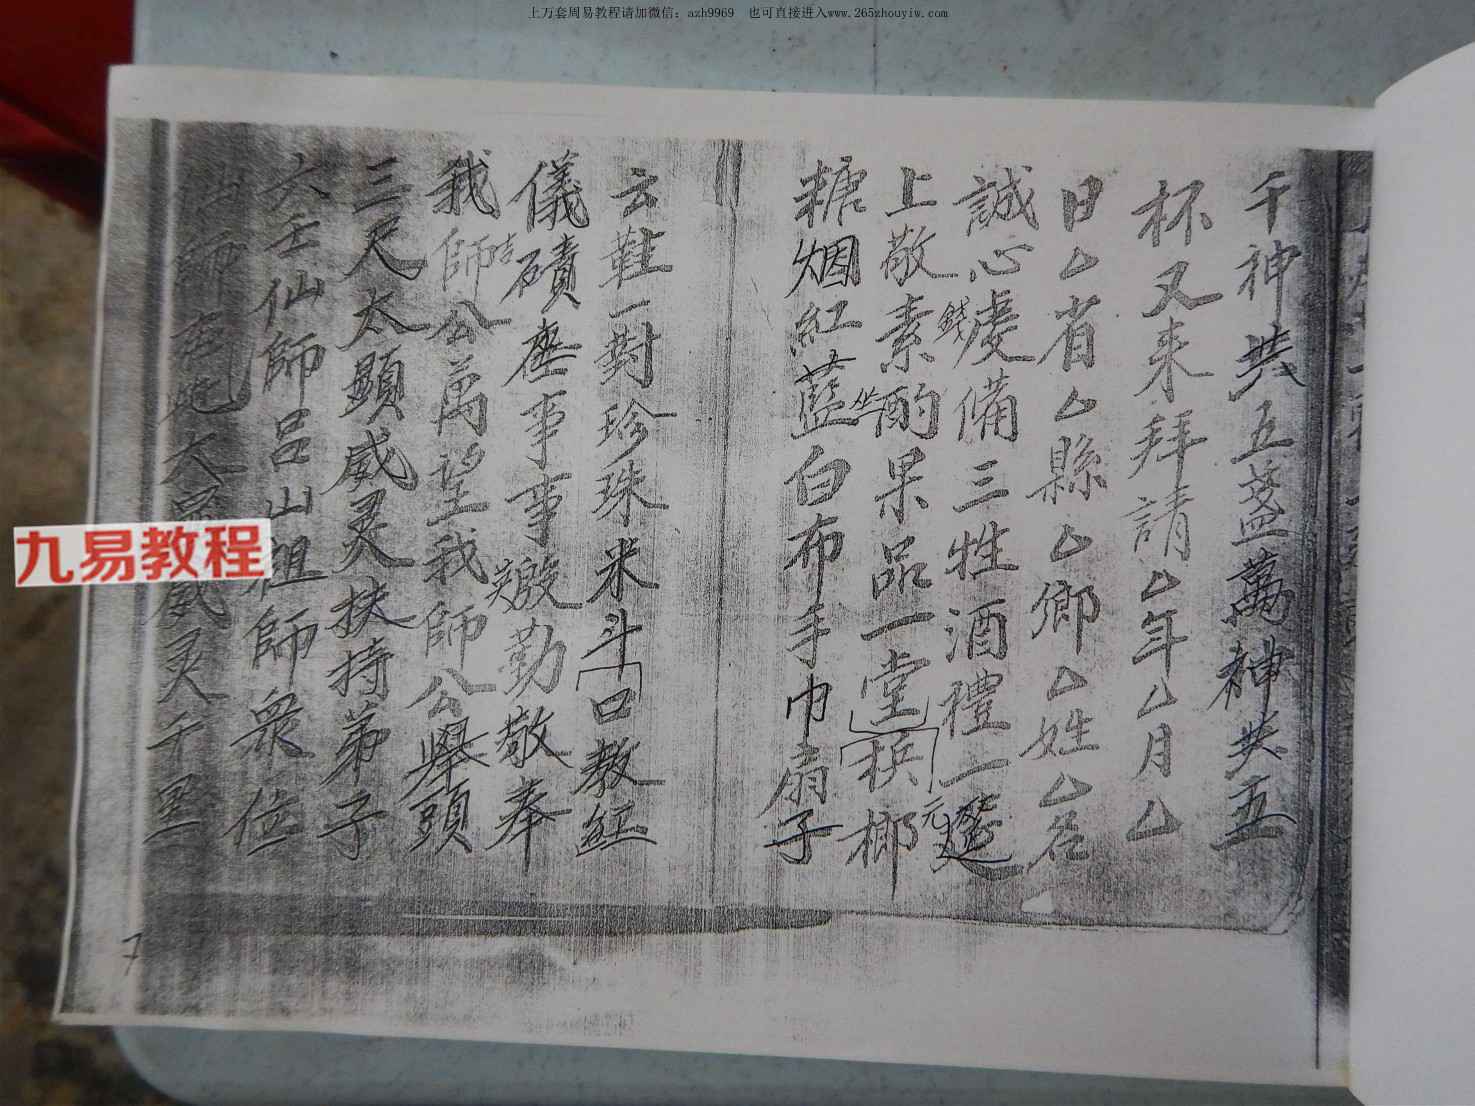 上万套周易教程请加微信：azh9969　也可直接进入www.265zhouyiw.com
千神共五盞萬神共五
杯又来拜請厶年厶月厶
日厶省厶縣厶鄉厶姓厶名
誠心虔備三牲酒禮一筵
錢
元
上敬素酌果品一堂梹榔
糖烟紅藍白布手巾扇子
云鞋一對珍珠米斗口教紅
儀磧事事勤敬奉
我師公萬望我師公舉頭
吉
三尺太顕威灵扶持弟子
六壬仙師呂山祖師衆位
師大威灵千里
九易教程
7